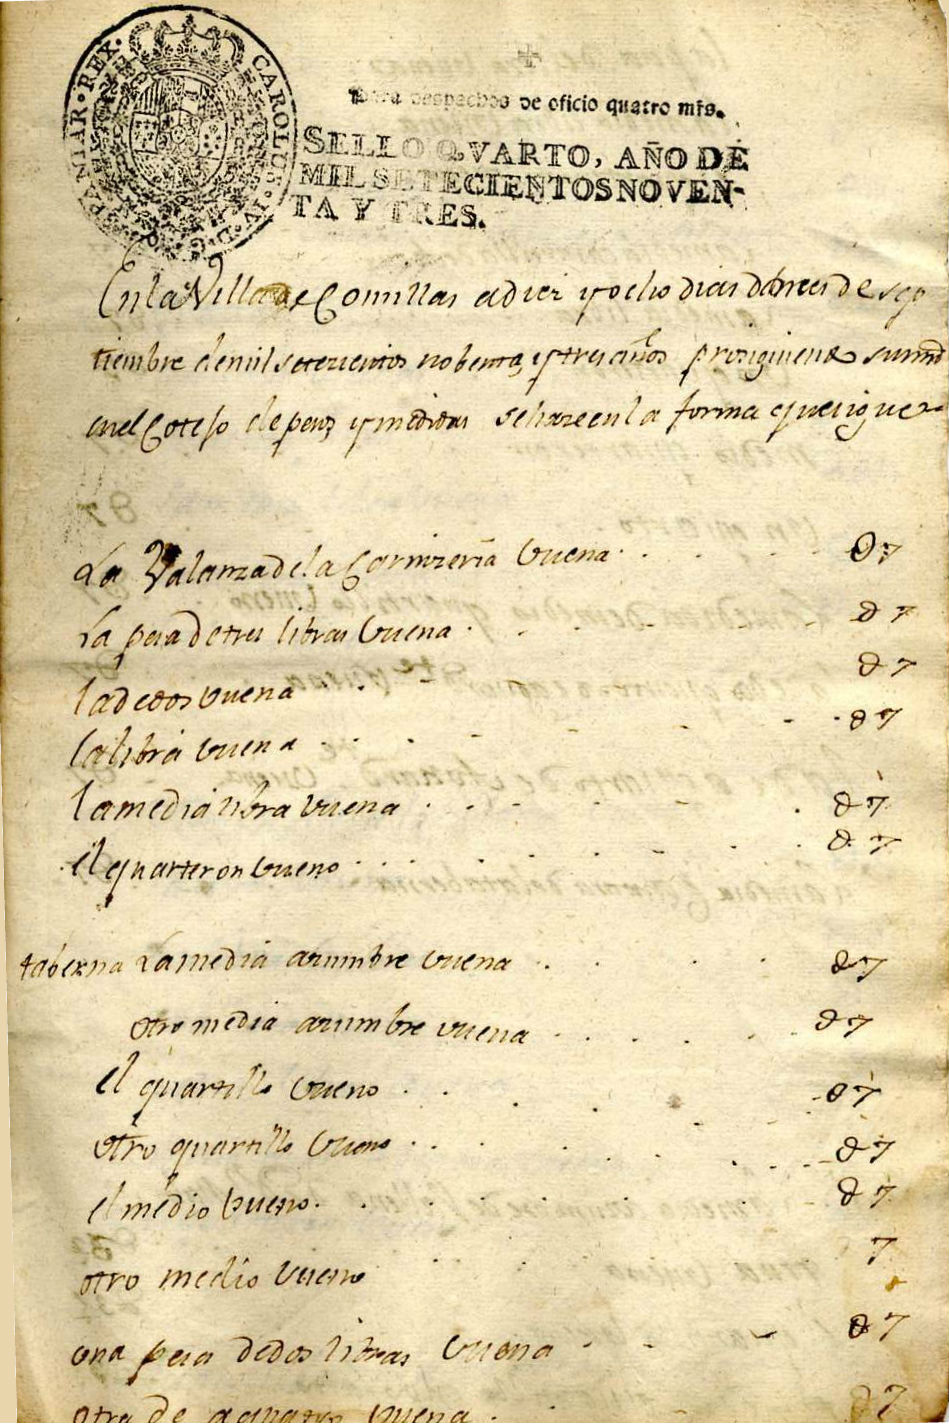 CAROLUS IV D G HISPANIAR REX
Para despachos de oficio quatro mrs.
SELLO QVARTO, AÑO DE
MIL SETECIENTOS NOVEN-
TA Y TRES.
En la Villa de Comillas a diez y ocho dias del mes de sep
tiembre de mil setezientos nobenta y tres años prosiguiendo su md
en el Cotejo de pesos y medidas se haze en la forma que sigue
La Valanza de la Carnizeria buena 07
La pesa de tres libras buena 07
la de dos buena 07
la libra buena 07
la media libra buena 07
el quarteron bueno 07
taberna La media azumbre buena 07
otra media azumbre buena 07
el quartillo bueno 07
otro quartillo bueno 07
el medio bueno 07
otro medio bueno 7
una pesa de dos libras buena 07
otra de a quatro buena 07